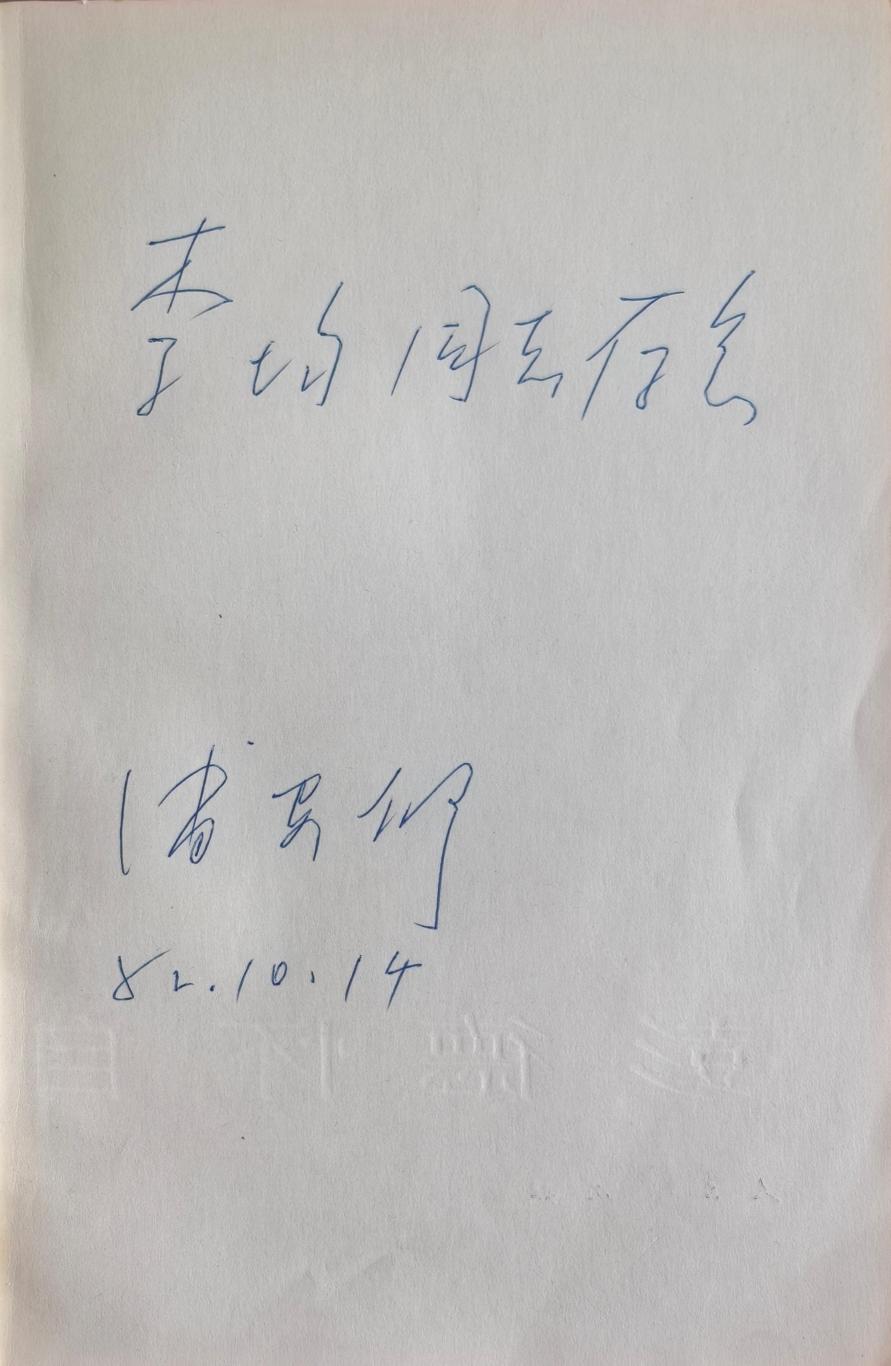 李均同志存念
浦安修
82.10.14